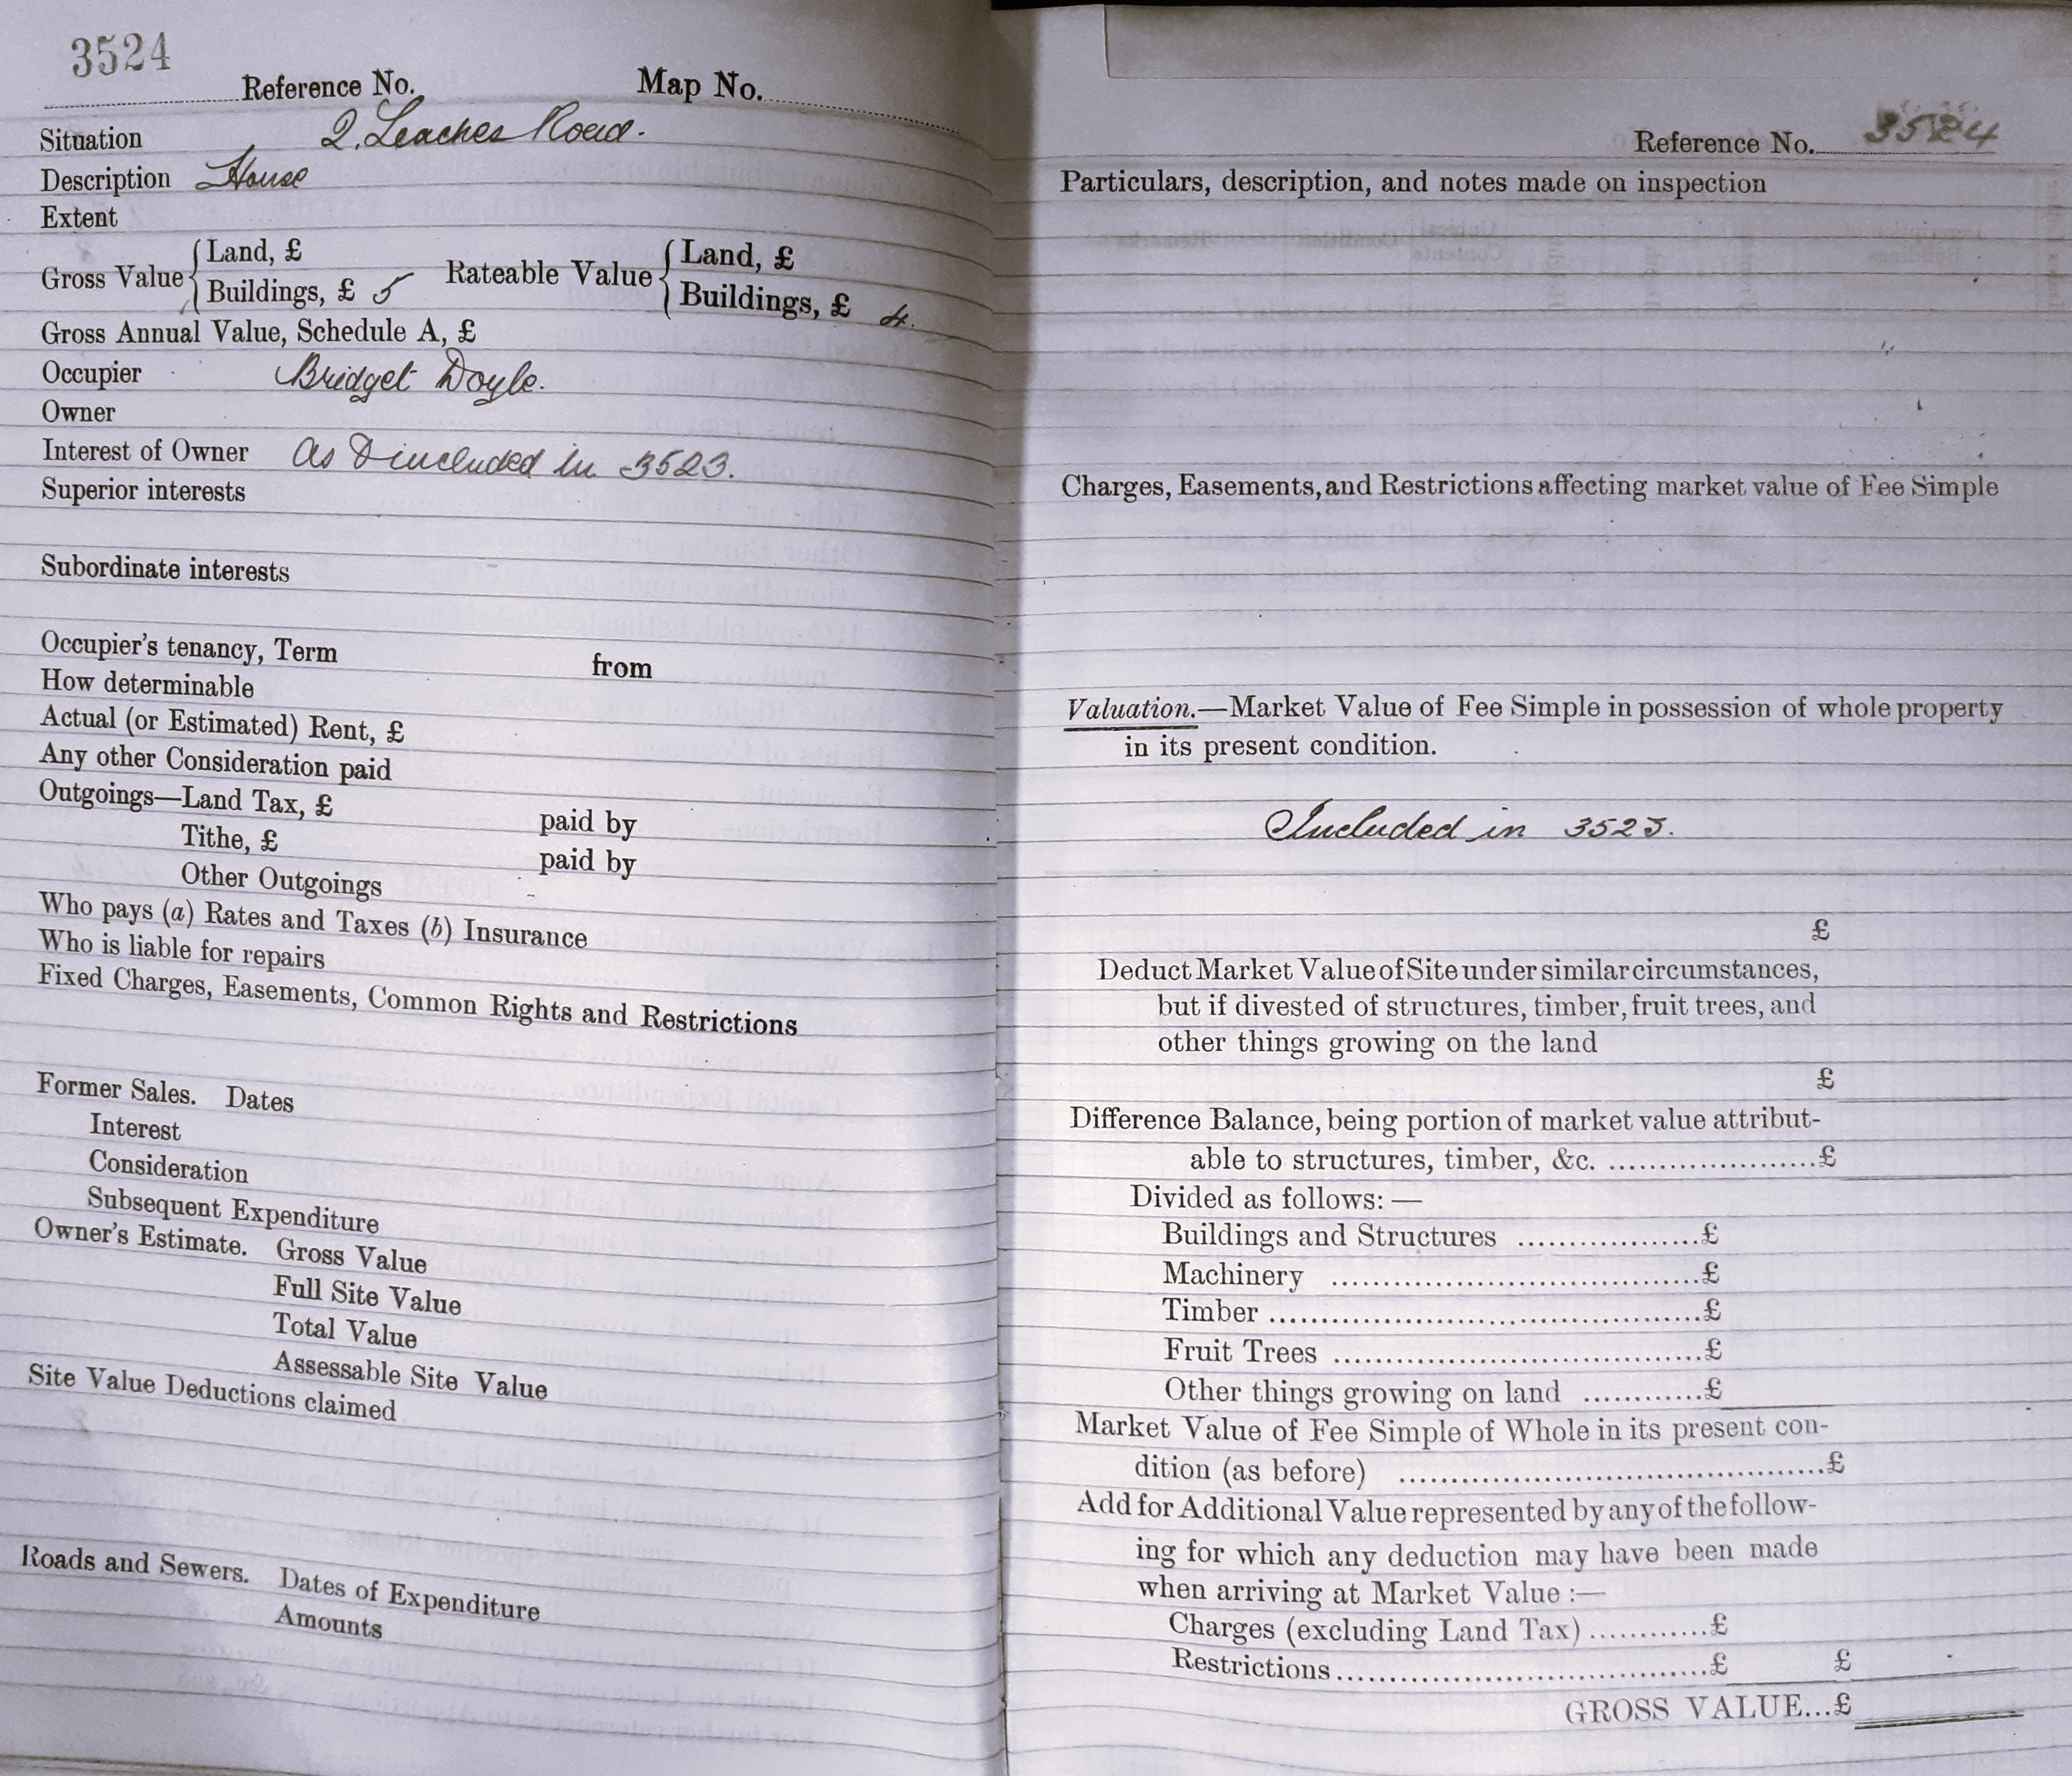 3524
Reference No. Map No.
Situation 2, Leaches Road.
Description House
Extent
Gross Value { Land, £ Rateable Value { Land, £
Buildings, £ 5 Buildings, £ 4.
Gross Annual Value, Schedule A, £
Occupier Bridget Doyle.
Owner
Interest of Owner as & included in 3523.
Superior interests
Subordinate interests
Occupier's tenancy, Term from
How determinable
Actual (or Estimated) Rent, £
Any other Consideration paid
Outgoings—Land Tax, £ paid by
Tithe, £ paid by
Other Outgoings
Who pays (a) Rates and Taxes (b) Insurance
Who is liable for repairs
Fixed Charges, Easements, Common Rights and Restrictions
Former Sales. Dates
Interest
Consideration
Subsequent Expenditure
Owner's Estimate. Gross Value
Full Site Value
Total Value
Assessable Site Value
Site Value Deductions claimed
Roads and Sewers. Dates of Expenditure
Amounts
Reference No. 3524
Particulars, description, and notes made on inspection
Charges, Easements, and Restrictions affecting market value of Fee Simple
Valuation.—Market Value of Fee Simple in possession of whole property
in its present condition.
Included in 3523.
£
Deduct Market Value of Site under similar circumstances,
but if divested of structures, timber, fruit trees, and
other things growing on the land
£
Difference Balance, being portion of market value attribut-
able to structures, timber, &c. ....................£
Divided as follows:—
Buildings and Structures ..................£
Machinery ....................................£
Timber ..........................................£
Fruit Trees ....................................£
Other things growing on land ............£
Market Value of Fee Simple of Whole in its present con-
dition (as before) ..........................................£
Add for Additional Value represented by any of the follow-
ing for which any deduction may have been made
when arriving at Market Value :—
Charges (excluding Land Tax) ............£
Restrictions ....................................£ £
GROSS VALUE...£